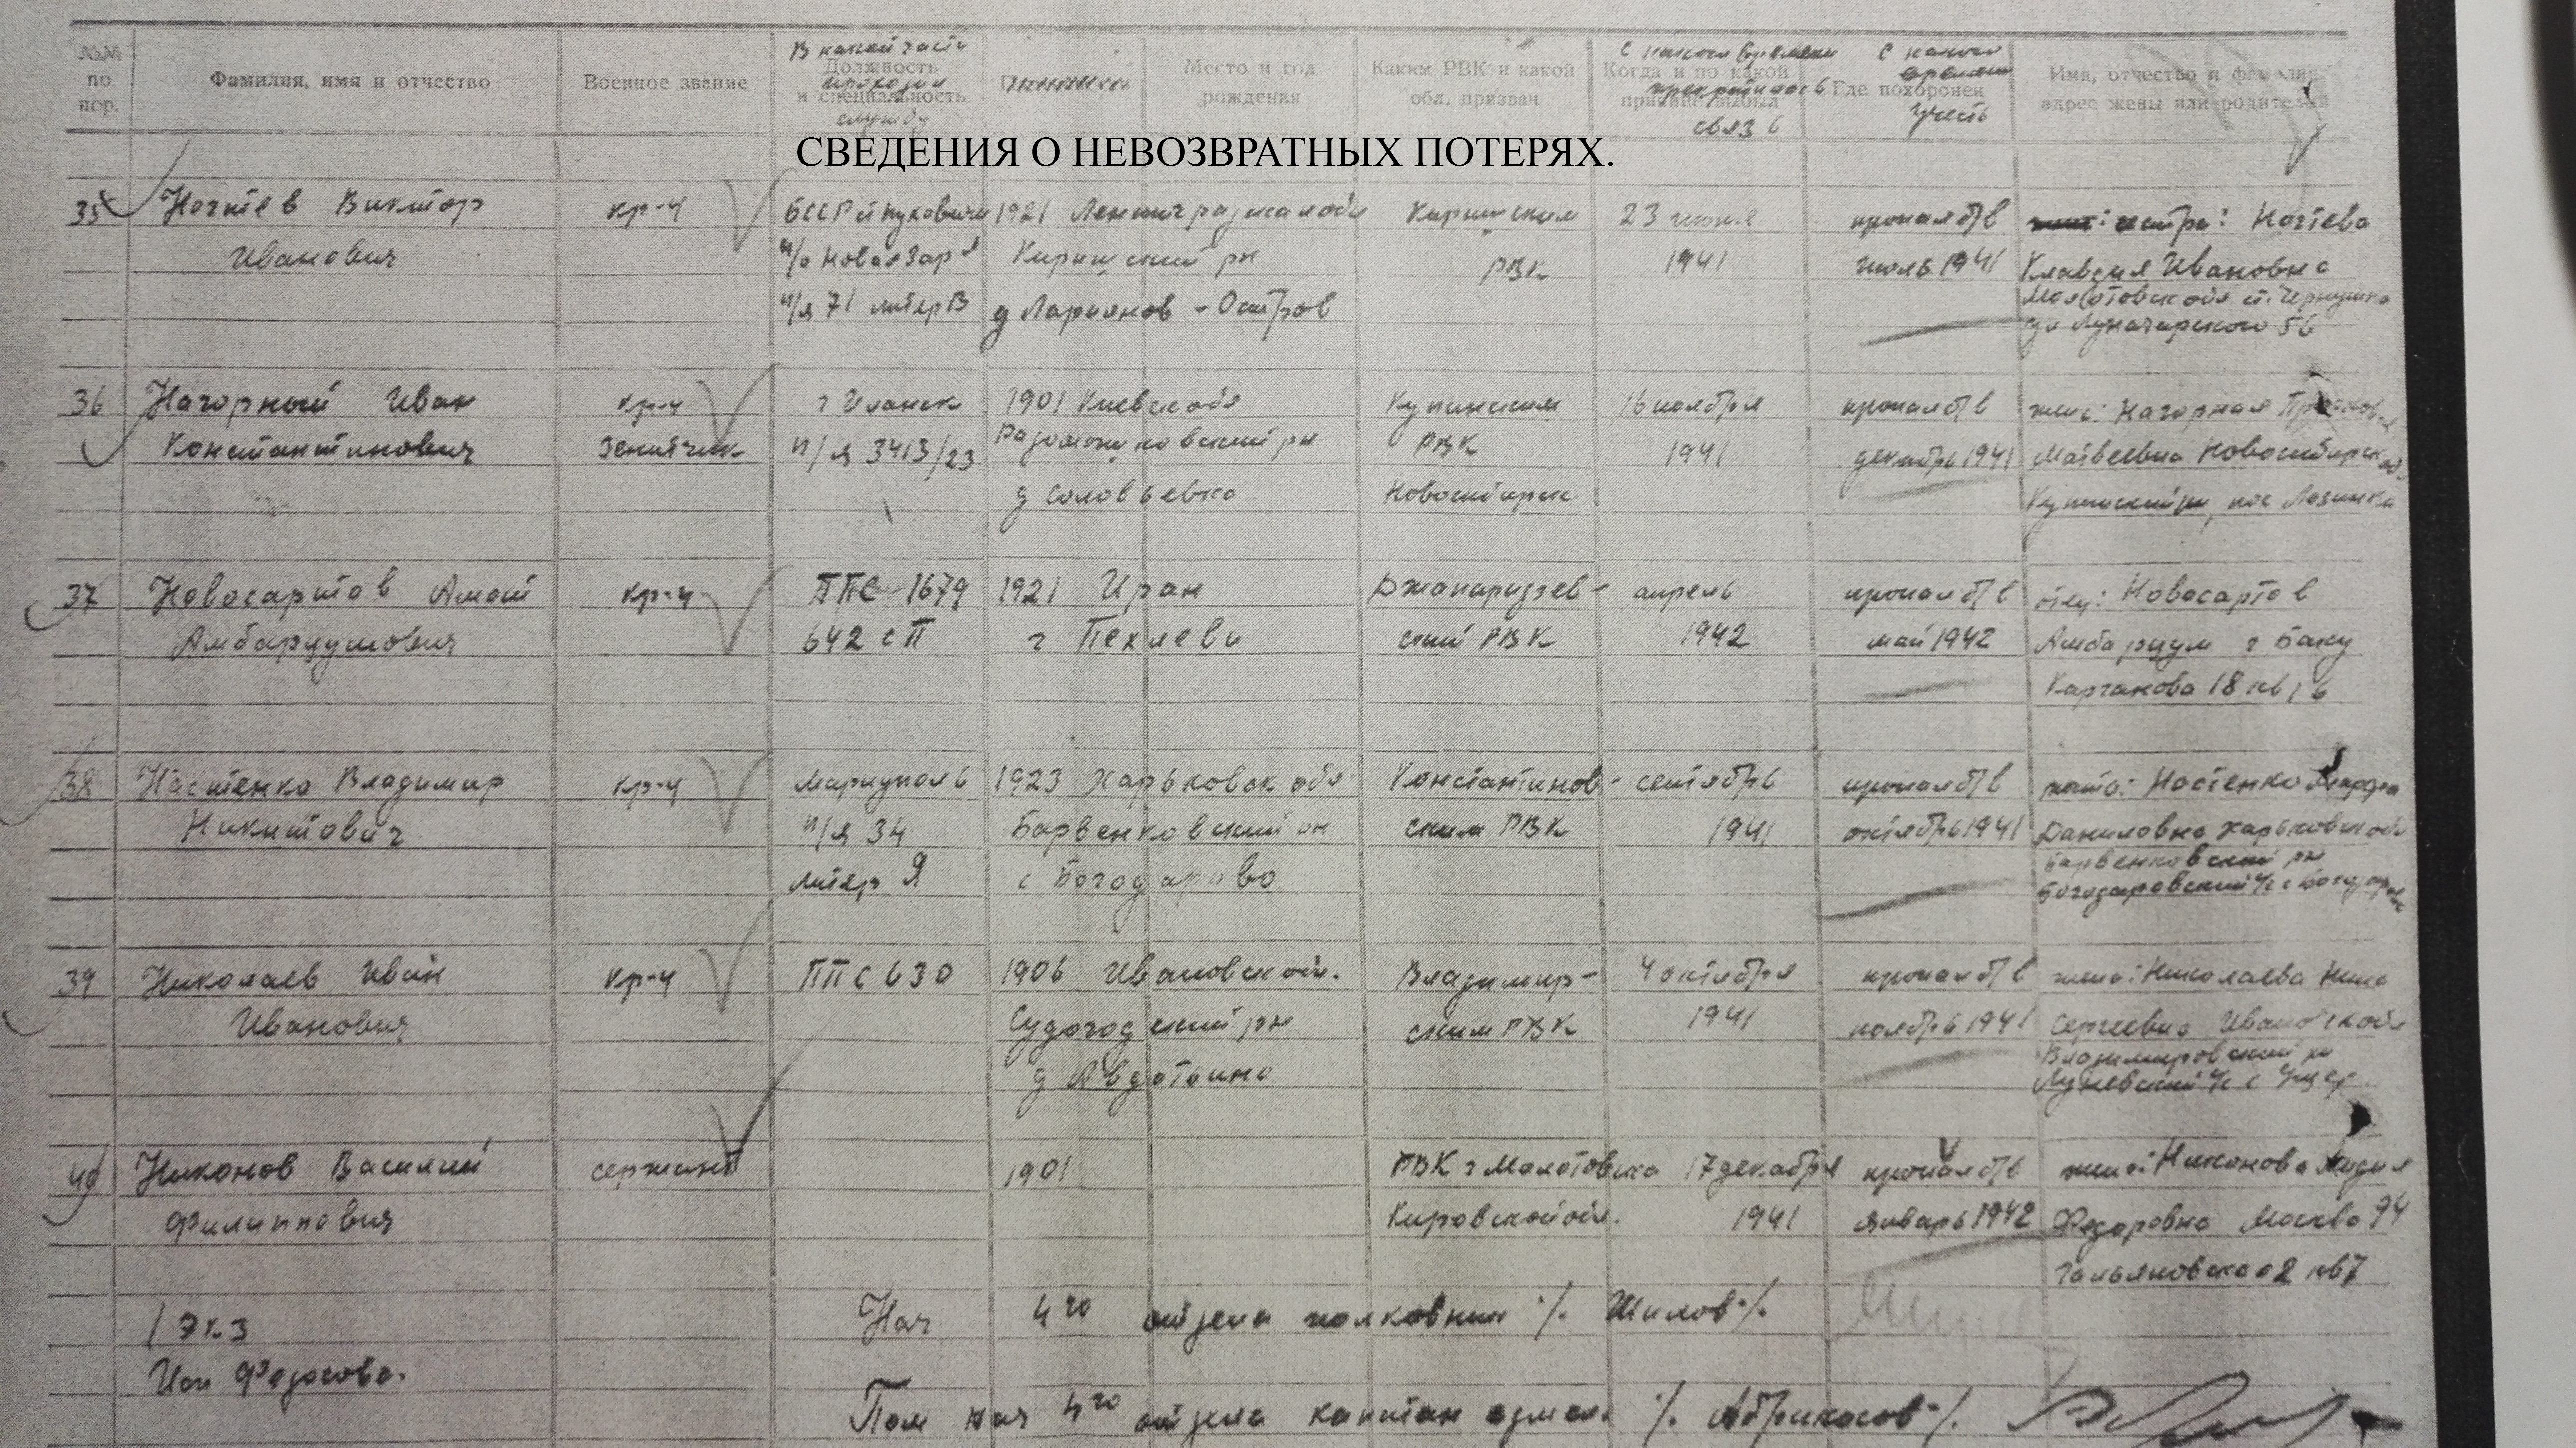 №№ по пор.
Фамилия, имя и отчество
Военное звание
В какой части проходил службу
Должность и специальность
Место и год рождения
Каким РВК и какой обл. призван
С какого времени прекратилась связь
Когда и по какой причине выбыл
С какого времени учесть
Где похоронен
Имя, отчество и фамилия, адрес жены или родителей
СВЕДЕНИЯ О НЕВОЗВРАТНЫХ ПОТЕРЯХ.
35 Ногтев Виктор кр-ц БССР 1921 Ленинградская обл Киришским 23 июня пропал б/в сестра: Ногтева
Иванович п/о Новая Заря Киришский рн РВК 1941 июль 1941 Клавдия Ивановна
п/я 71 литер В д Ларионов-Остров Молотовск обл ст. Чернушка
ул Луначарского 56
36 Нагорный Иван кр-ц 1901 Киевск обл Купинским 16 ноября пропал б/в жена: Нагорная
Константинович зенитчик п/я 3413/23 РВК 1941 декабрь 1941 Матвеевна Новосибирск об
д Соловьевка Новосибирск Купинский рн, пос Лозинка
37 Новосартов Амаш кр-ц ППС 1679 1921 Иран Джапаридзев- апрель пропал б/в отец: Новосартов
Амбарцумович 642 сп г Пехлеви ский РВК 1942 май 1942 Амбарцум г Баку
Карганова 18 кв 16
38 Настенко Владимир кр-ц Мариуполь 1923 Харьковск обл Константинов- сентябрь пропал б/в мать: Настенко Марфа
Никитович п/я 34 Барвенковский рн ским РВК 1941 октябрь 1941 Даниловна Харьковск обл
литер Я с Богодарово Барвенковский рн
Богодаровский с/с с Богодаров
39 Николаев Иван кр-ц ППС 630 1906 Ивановск обл. Владимир- 4 октября пропал б/в жена: Николаева Нина
Иванович Судогодский рн ским РВК 1941 ноябрь 1941 Сергеевна Ивановск обл
д Авдотьино Владимировский рн
с/с с
40 Никонов Василий сержант 1901 РВК г Молотовска 17 декабря пропал б/в жена: Никонова Лидия
Филиппович Кировской обл. 1941 январь 1942 Федоровна Москва 94
Гольяновская 2 кв 7
1 Экз
Исп Федосова.
Нач 4го отдела полковник /. Шилов /.
Пом нач 4го отдела капитан адм сл. /. Абрикосов /.